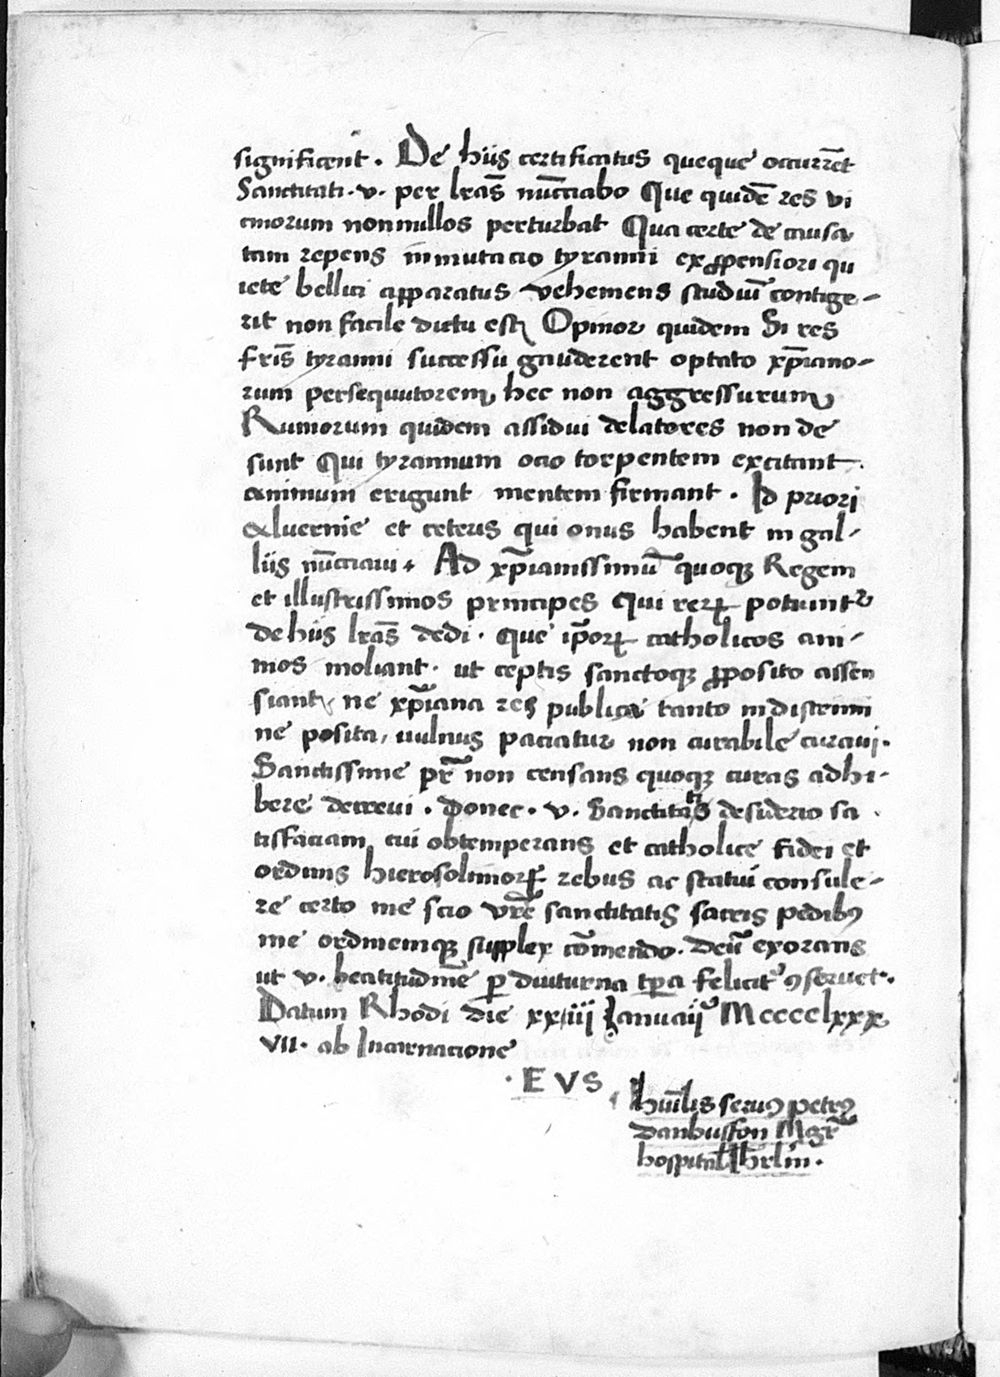 significent. De hiis certificatus queque occurrēt
Sanctitati. v. per lrās nūctiabo Que quidē res vi
cinorum nonnullos perturbat Qua certe de causa
tam repens inmutacio tyranni ex ꝓpensiori qu
iete bellici apparatus vehemens studiū contige-
rit non facile dictu est Opinor quidem Si res
fris̄ tyranni successu gauderent optato xp̄iano-
rum persequutorem hec non aggressurum
Rumorum quidem assidui delatores non de
sunt Qui tyrannum ocio torpentem excitant
animum erigunt mentem firmant. Id priori
aluernie et ceteris qui onus habent in gal-
liis nūctiaui. Ad xp̄ianissimū quoqꝫ Regem
et illustrissimos principes Qui rerꝝ potiuntᷣ
de hiis lrās dedi. Que ip̄orꝝ catholicos ani-
mos moliant. ut ceptis sanctoqꝫ ꝓposito assen
siant, ne xp̄iana res publica tanto in discrimi
ne posita, uulnus paciatur non curabile curaui.
Sanctissime pr̄ non censans quoqꝫ curas adhi-
bere decreui. Donec. v. Sanctitatis desiderio sa
tisfaciam cui obtemperans et catholice fidei et
ordinis hierosolimorꝝ rebus ac statui consule-
re certo me scio vrē sanctitatis sacris pedibꝰ
me ordinemqꝫ supplex cōmendo. Deū exorans
ut v. beatitudinē ꝑ diuturna tp̄a felicitᷣ ꝯseruet.
Datum Rhodi die xxiiij Ianuaij Mcccclxxx
vii. ab Incarnacione
. E V S
hūilis seruꝯ petrꝯ
danbusson Mgr̄
hospital̄ Ihrlm̄.